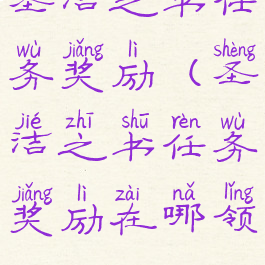 圣洁之书任
wù jiǎng lì shèng
务奖励（圣
jié zhī shū rèn wù
洁之书任务
jiǎng lì zài nǎ lǐng
奖励在哪领